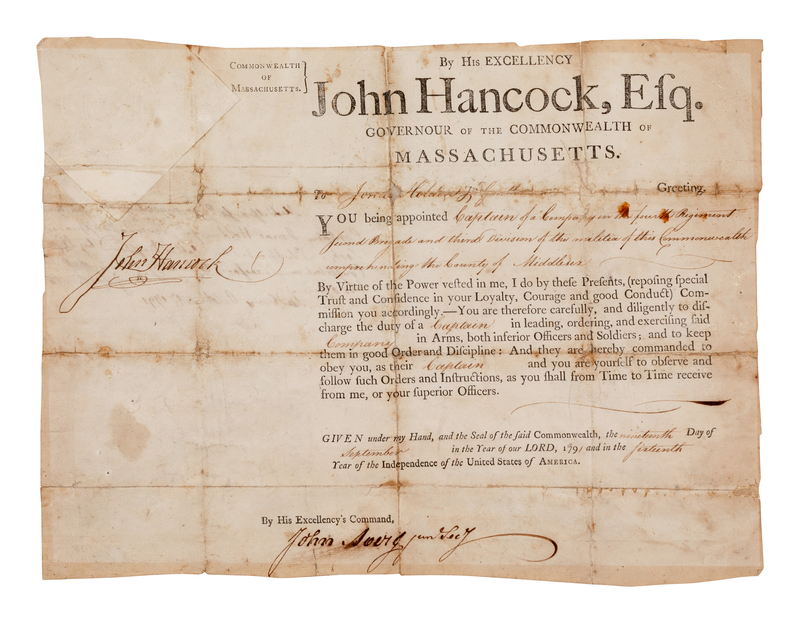 COMMONWEALTH
OF
MASSACHUSETTS.
By His EXCELLENCY
John Hancock, Eſq.
GOVERNOUR OF THE COMMONWEALTH OF
MASSACHUSETTS.
To Greeting.
YOU being appointed Captain of a Company in the fourth Regiment
Second Brigade and third Division of the malitea of this Commonwealth
comprehending the County of Middlesex
By Virtue of the Power veſted in me, I do by theſe Preſents, (repoſing ſpecial
Truſt and Confidence in your Loyalty, Courage and good Conduct) Com-
miſſion you accordingly.—You are therefore carefully, and diligently to diſ-
charge the duty of a Captain in leading, ordering, and exerciſing ſaid
Company in Arms, both inferior Officers and Soldiers; and to keep
them in good Order and Diſcipline: And they are hereby commanded to
obey you, as their Captain and you are yourſelf to obſerve and
follow ſuch Orders and Inſtructions, as you ſhall from Time to Time receive
from me, or your ſuperior Officers.
John Hancock
GIVEN under my Hand, and the Seal of the ſaid Commonwealth, the nineteenth Day of
September in the Year of our LORD, 1791 and in the ſixteenth
Year of the Independence of the United States of AMERICA.
By His Excellency's Command,
John Avery jun Secy